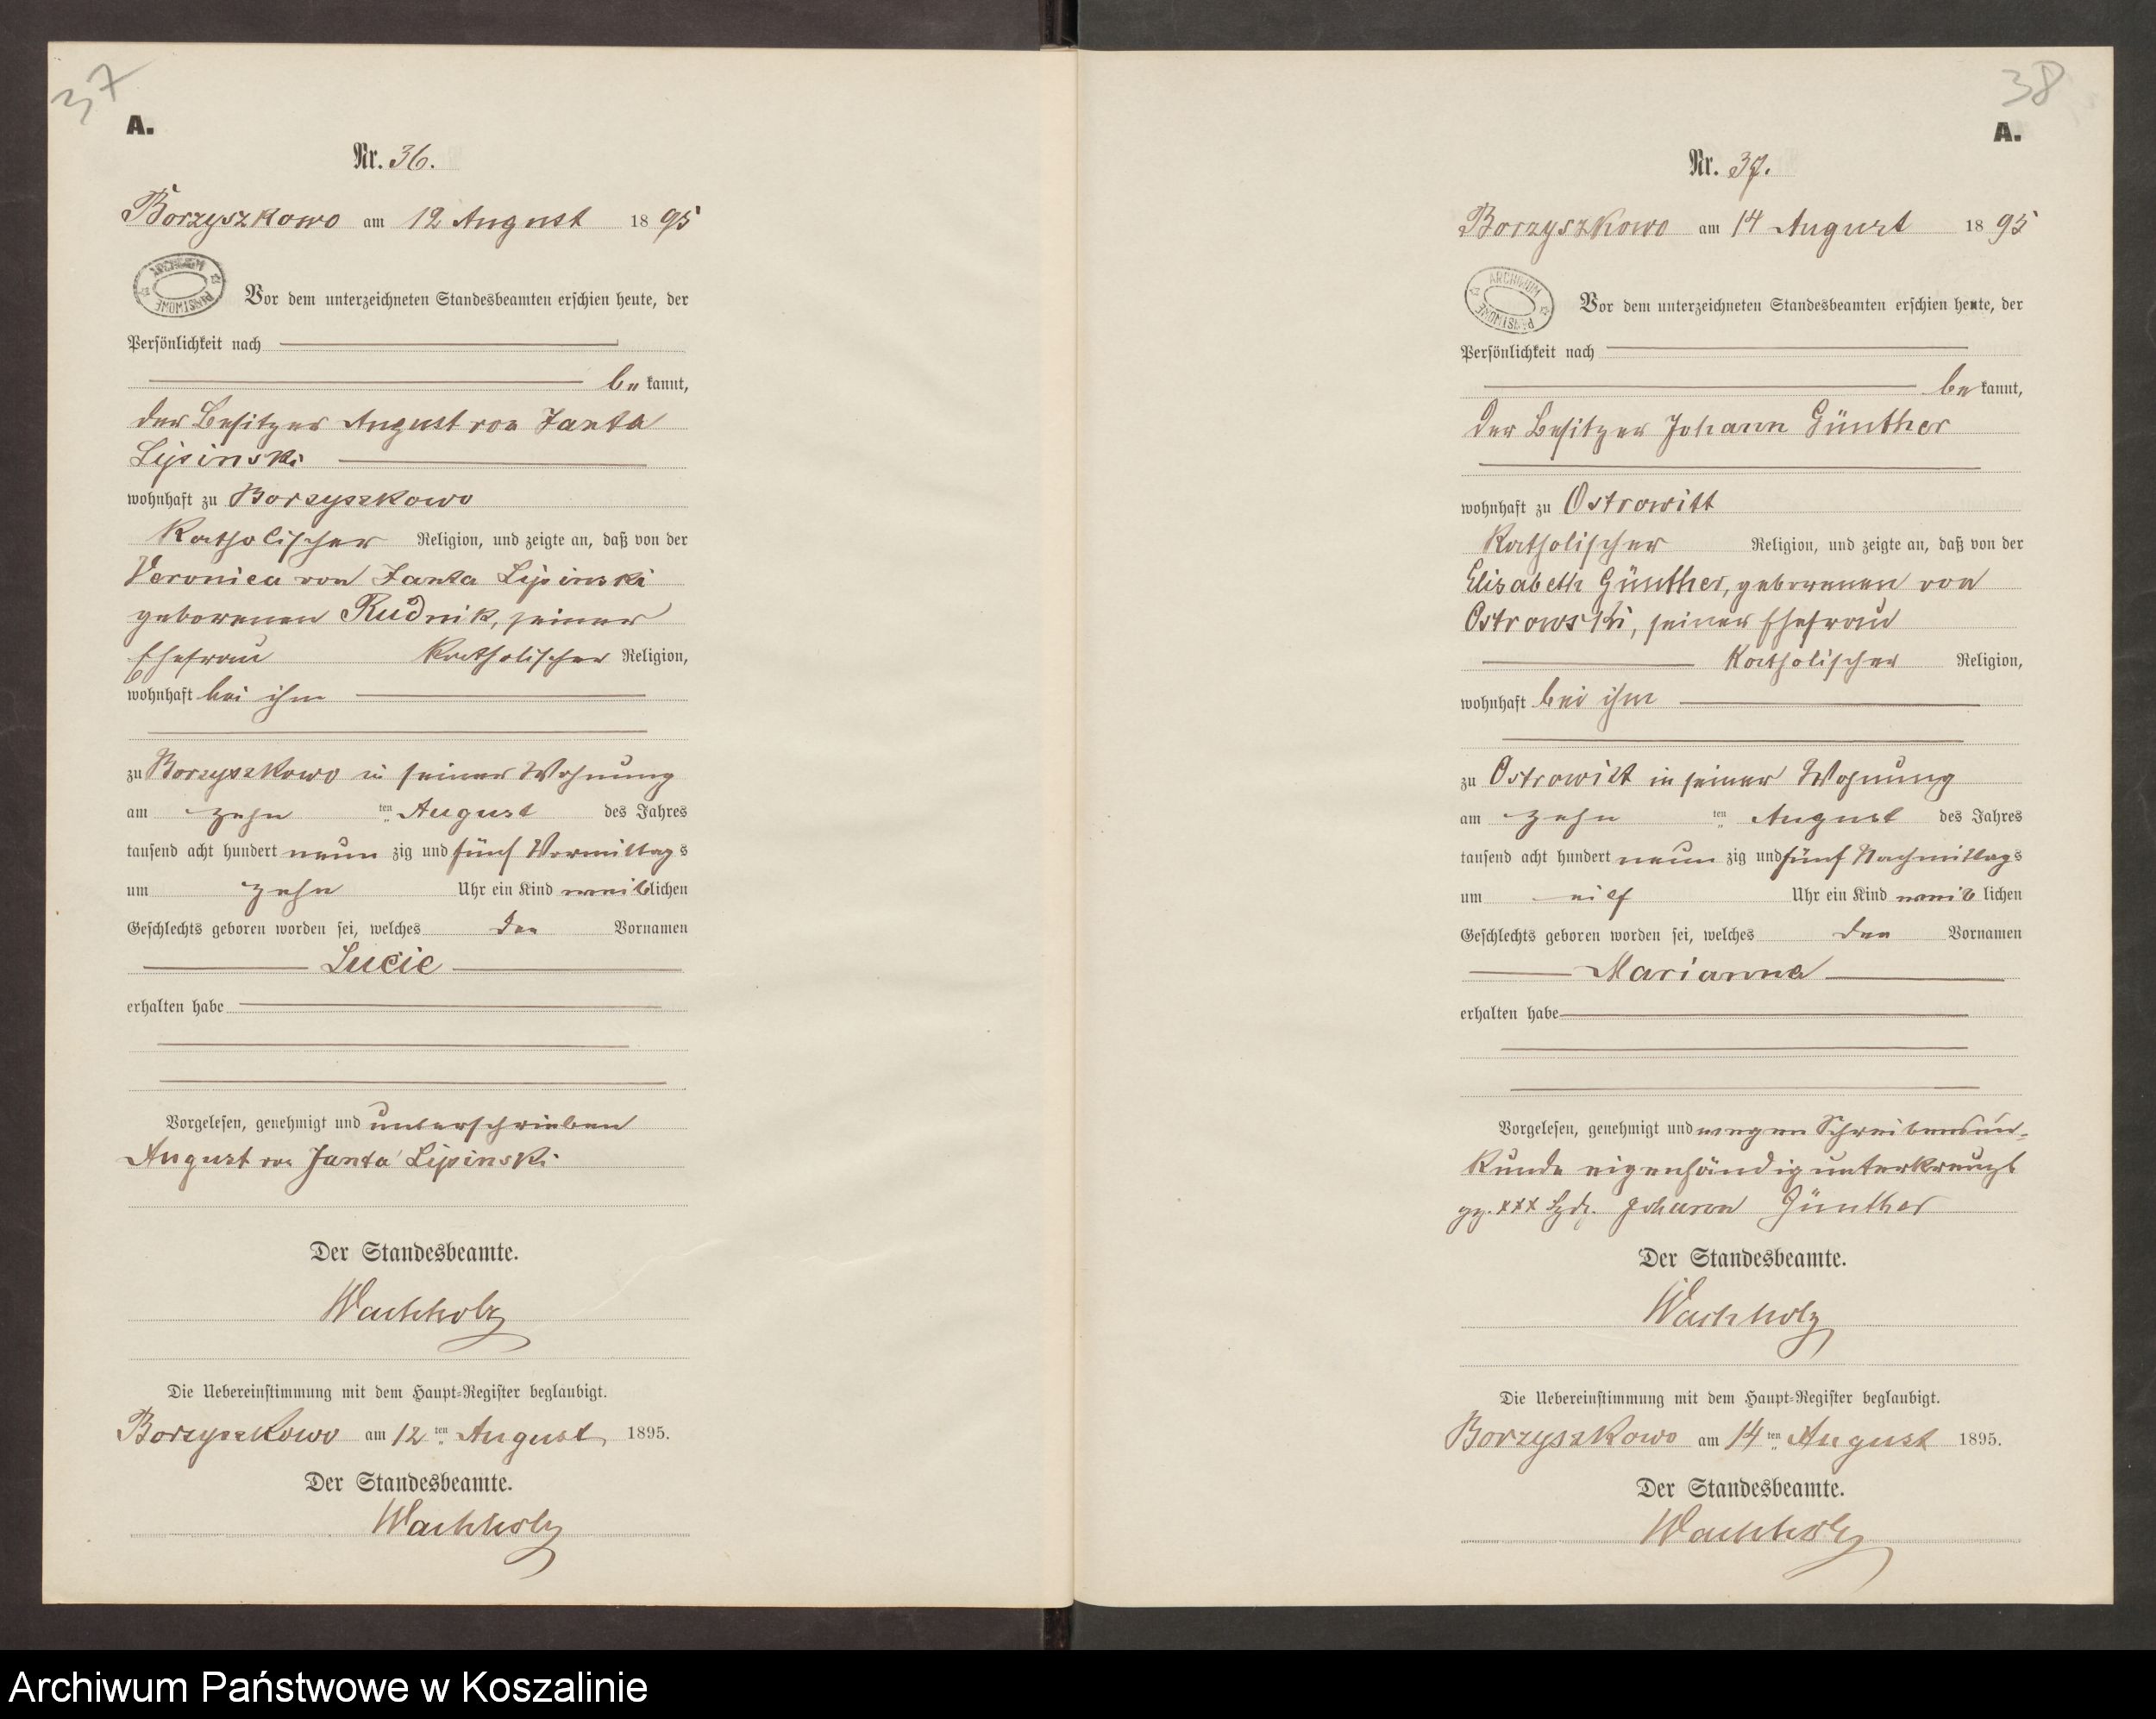 37
A.
Nr. 36.
Borzyszkowo am 12 August 1895
ARCHIWUM PAŃSTWOWE
Vor dem unterzeichneten Standesbeamten erschien heute, der
Persönlichkeit nach
bekannt,
der Besitzer August von Janta
Lipinski
wohnhaft zu Borzyszkowo
Katholischer Religion, und zeigte an, daß von der
Veronica von Janta Lipinski
geborenen Rudnik, seiner
Ehefrau Katholischer Religion,
wohnhaft bei ihm
zu Borzyszkowo in seiner Wohnung
am zehn ten August des Jahres
tausend acht hundert neun zig und fünf Vormittags
um zehn Uhr ein Kind weiblichen
Geschlechts geboren worden sei, welches den Vornamen
Lucie
erhalten habe
Vorgelesen, genehmigt und unterschrieben
August von Janta Lipinski
Der Standesbeamte.
Wachholz
Die Uebereinstimmung mit dem Haupt-Register beglaubigt.
Borzyszkowo am 12 ten August 1895.
Der Standesbeamte.
Wachholz
38
A.
Nr. 37.
Borzyszkowo am 14 August 1895
ARCHIWUM PAŃSTWOWE
Vor dem unterzeichneten Standesbeamten erschien heute, der
Persönlichkeit nach
bekannt,
der Besitzer Johann Günther
wohnhaft zu Ostrowitt
Katholischer Religion, und zeigte an, daß von der
Elisabeth Günther, geborenen von
Ostrowski, seiner Ehefrau
Katholischer Religion,
wohnhaft bei ihm
zu Ostrowitt in seiner Wohnung
am zehn ten August des Jahres
tausend acht hundert neun zig und fünf Nachmittags
um eilf Uhr ein Kind weiblichen
Geschlechts geboren worden sei, welches den Vornamen
Marianna
erhalten habe
Vorgelesen, genehmigt und wegen Schreibensun-
kunde eigenhändig unterkreuzt
gz. xxx Hdz. Johann Günther
Der Standesbeamte.
Wachholz
Die Uebereinstimmung mit dem Haupt-Register beglaubigt.
Borzyszkowo am 14 ten August 1895.
Der Standesbeamte.
Wachholz
Archiwum Państwowe w Koszalinie